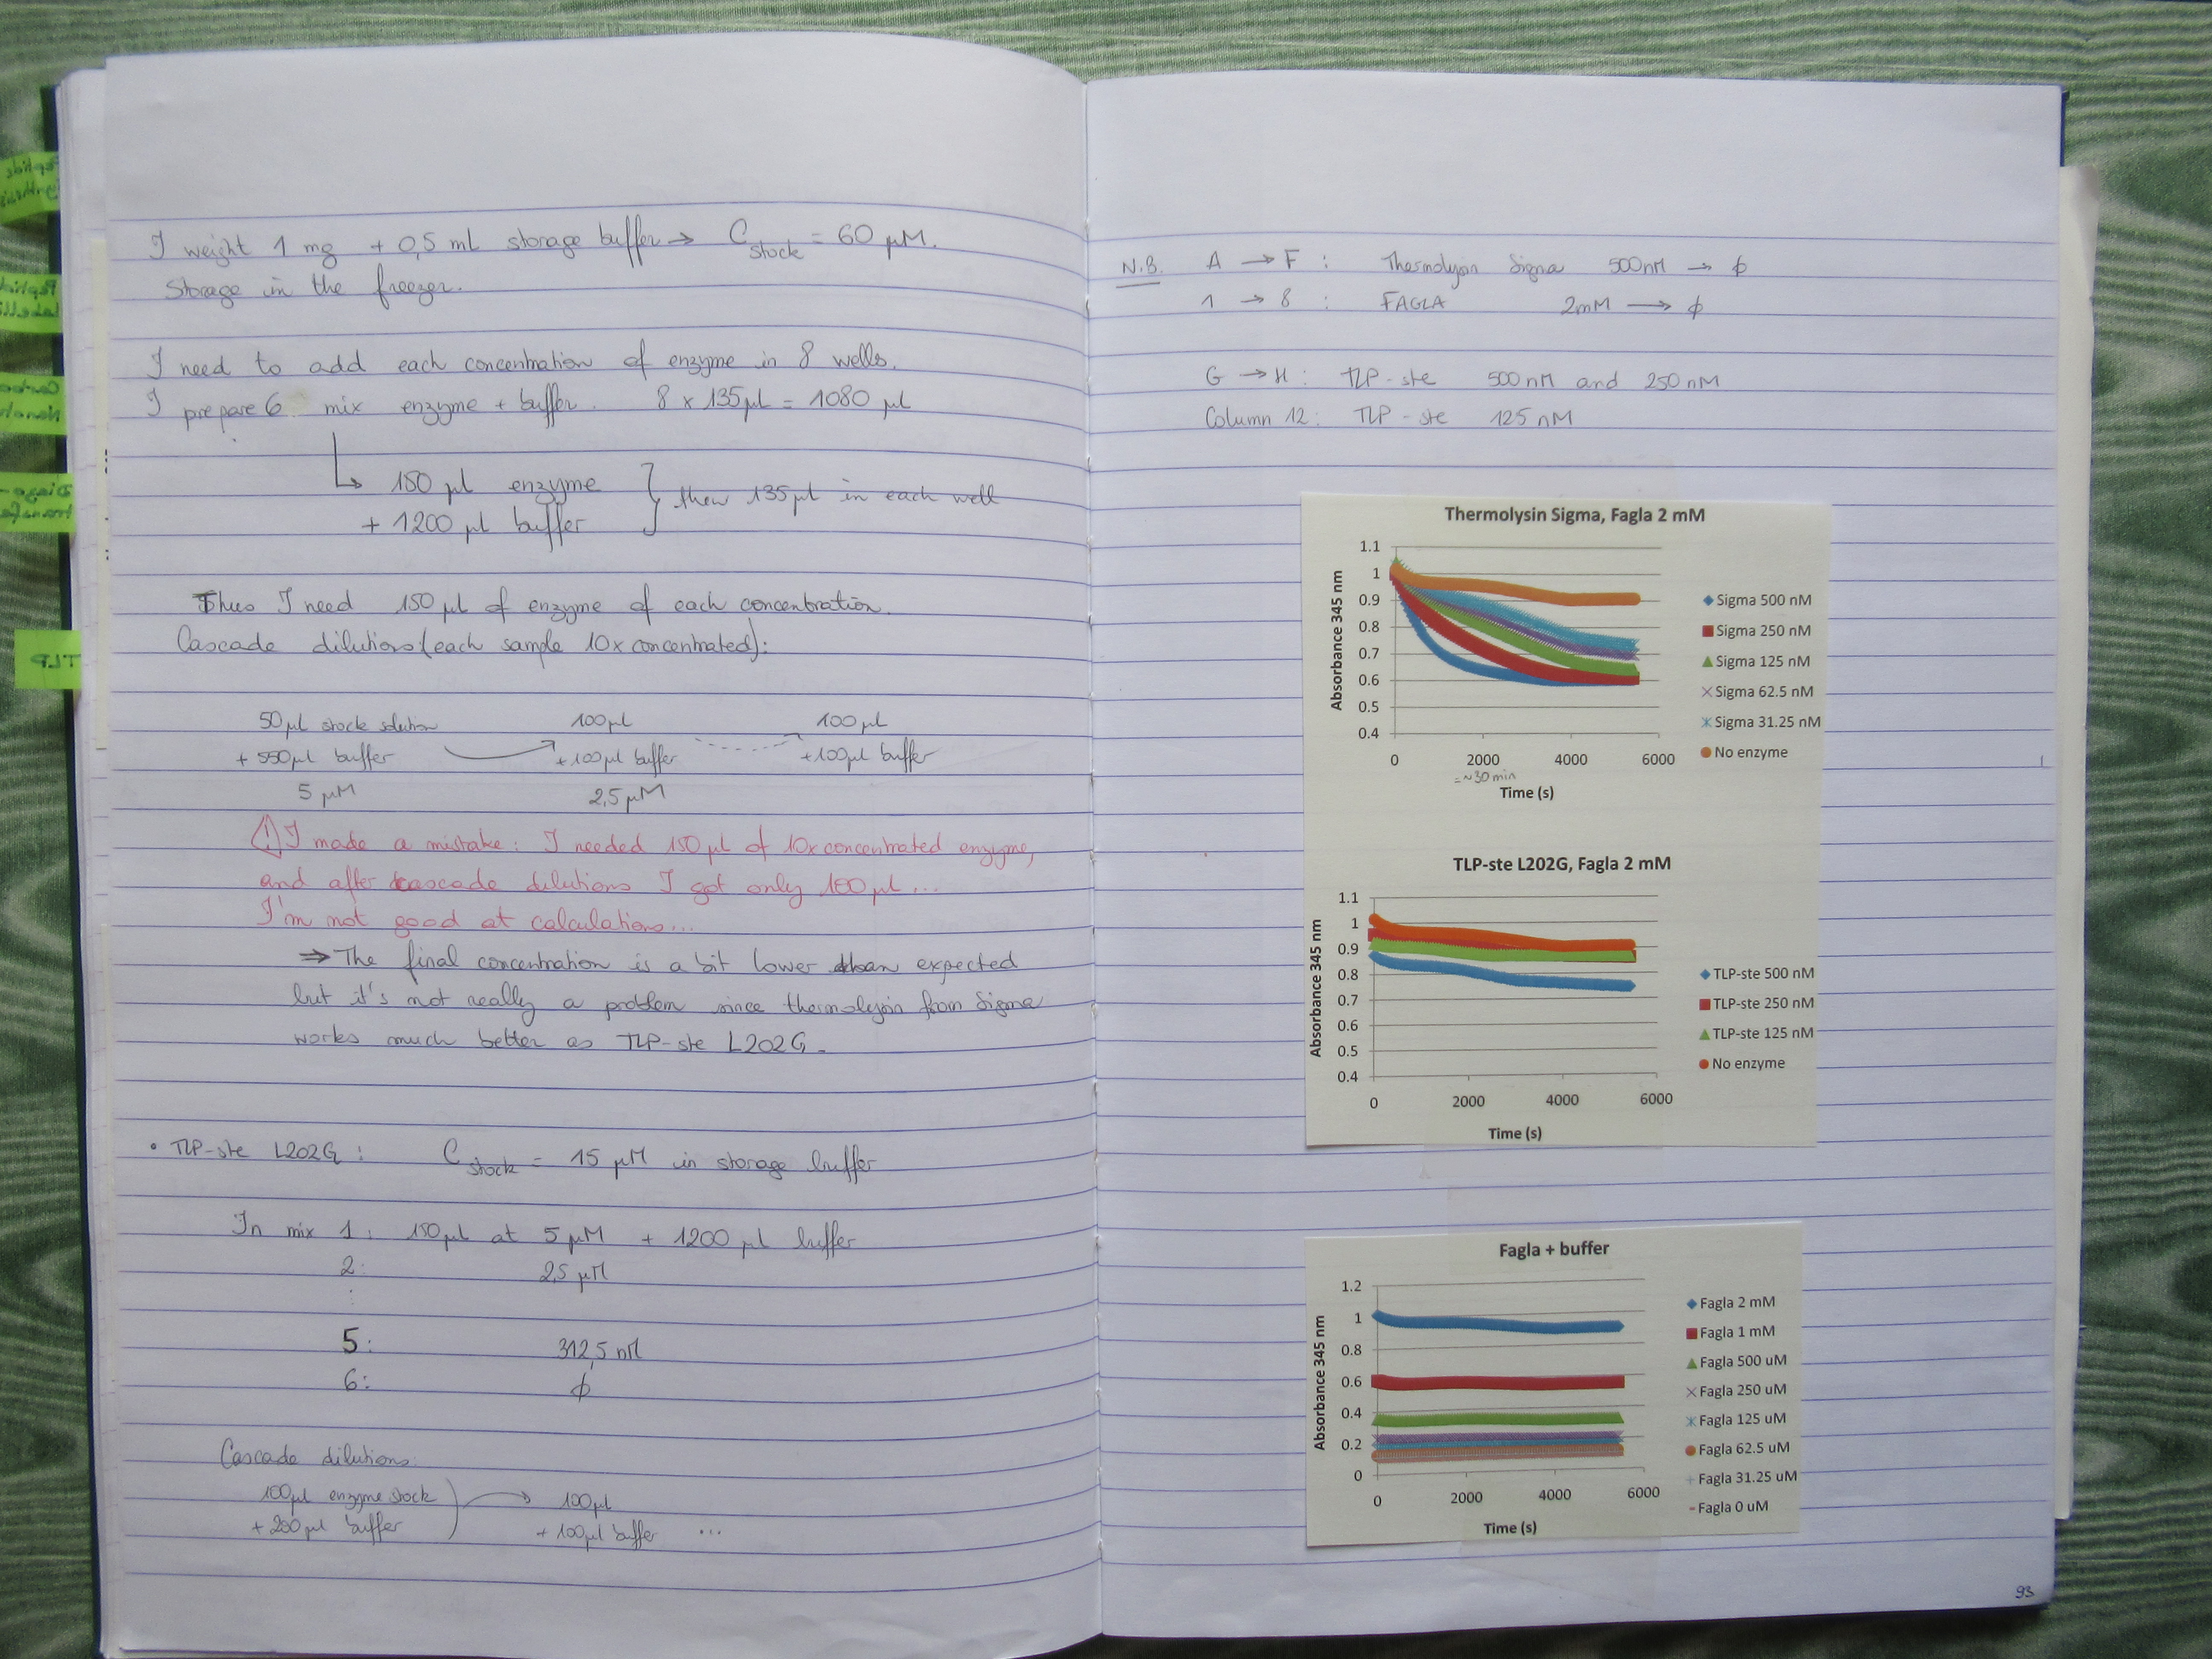 I weight 1 mg + 0,5 mL storage buffer → C stock = 60 µM.
Storage in the freezer.
I need to add each concentration of enzyme in 8 wells.
I prepare 6 mix enzyme + buffer. 8 x 135µl = 1080 µl
↳ 150 µl enzyme
+ 1200 µl buffer } then 135µl in each well
Thus I need 150 µl of enzyme of each concentration.
Cascade dilutions (each sample 10x concentrated):
50µl stock solution 100µl 100µl
+ 550µl buffer +100µl buffer +100µl buffer
5 µM 2,5 µM
⚠ I made a mistake: I needed 150 µl of 10x concentrated enzyme,
and after cascade dilutions I got only 100 µl...
I'm not good at calculations...
⇒ The final concentration is a bit lower than expected
but it's not really a problem since thermolysin from Sigma
works much better as TLP-ste L202G.
• TLP-ste L202G: C stock = 15 µM in storage buffer
In mix 1: 150µl at 5 µM + 1200 µl buffer
2: 2,5 µM
⋮
5: 312,5 nM
6: ϕ
Cascade dilutions:
100µl enzyme stock → 100µl
+ 200µl buffer + 100µl buffer ...
N.B. A → F : Thermolysin Sigma 500nM → ϕ
1 → 8 : FAGLA 2mM → ϕ
G → H : TLP-ste 500nM and 250nM
Column 12: TLP-ste 125 nM
Thermolysin Sigma, Fagla 2 mM
Absorbance 345 nm
1.1
1
0.9
0.8
0.7
0.6
0.5
0.4
0 2000 4000 6000
= ~30 min
Time (s)
Sigma 500 nM
Sigma 250 nM
Sigma 125 nM
Sigma 62.5 nM
Sigma 31.25 nM
No enzyme
TLP-ste L202G, Fagla 2 mM
Absorbance 345 nm
1.1
1
0.9
0.8
0.7
0.6
0.5
0.4
0 2000 4000 6000
Time (s)
TLP-ste 500 nM
TLP-ste 250 nM
TLP-ste 125 nM
No enzyme
Fagla + buffer
Absorbance 345 nm
1.2
1
0.8
0.6
0.4
0.2
0
0 2000 4000 6000
Time (s)
Fagla 2 mM
Fagla 1 mM
Fagla 500 uM
Fagla 250 uM
Fagla 125 uM
Fagla 62.5 uM
Fagla 31.25 uM
Fagla 0 uM
93
TLP